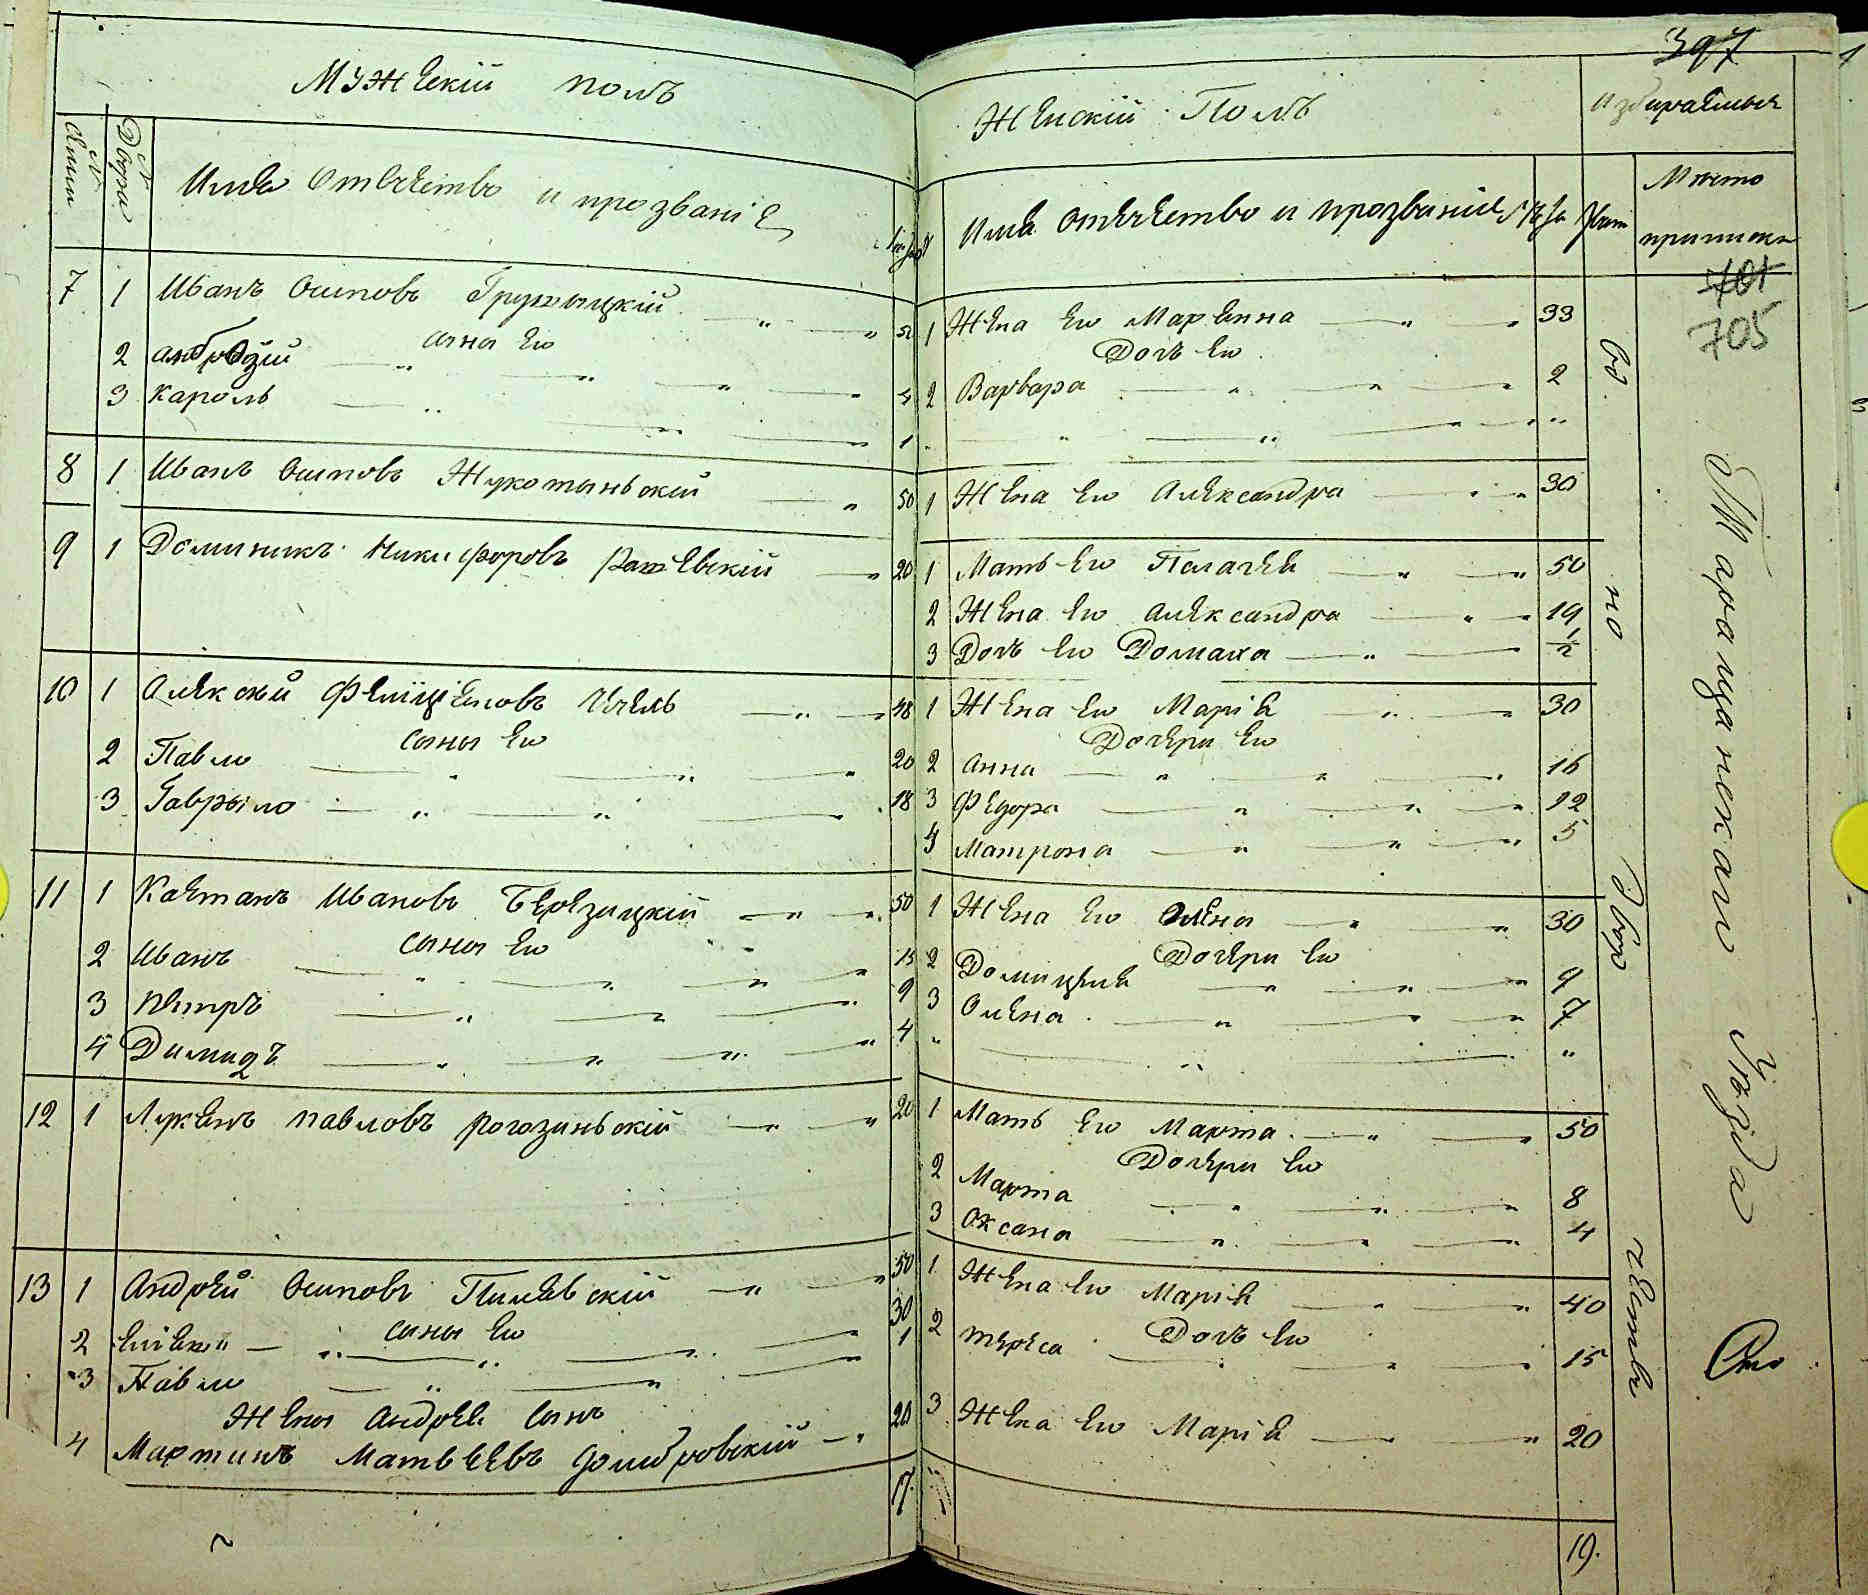 Мужескій полъ
№ Двора
Имя Отечество и прозваніе
7 1 Иванъ Осиповъ
сыны Его
2 Амброзій 4
3 Кароль 1
8 1 Иванъ Осиповъ Жукотыньскій 50
9 1 Доминикъ Никифоровъ 20
10 1 Алексей Фелиціановъ 48
сыны Его
2 Павло 20
3 Гаврыло 18
11 1 Каетанъ Ивановъ Березицкій 50
сыны Его
2 Иванъ 15
3 Петръ 9
4 Димидъ 4
12 1 Павловъ Рогозиньскій 20
13 1 Андрей Осиповъ Пилявскій 50
сыны Его
2 30
3 Павло 1
Жены Андрея сынъ
4 Мартинъ Матвеевъ Домбровскій 20
17.
397
Женскій Полъ
Избираемыя
Имя Отечество и прозваніе
Место приписки
701
705
1 Жена Его Маріанна 33
Дочь Его
2 Варвара 2
1 Жена Его Александра 30
1 Мать Его Пелагея 50
2 Жена Его Александра 19
3 Дочь Его Домаха 1/2
1 Жена Его Марія 30
Дочери Его
2 Анна 16
3 Федора 12
4 Матрона 5
1 Жена Его Олена 30
Дочери Его
2 Домицеля 9
3 Олена 7
1 Мать Его Марта 50
Дочери Его
2 Марта 8
3 Оксана 4
1 Жена Его Марія 40
Дочь Его
2 Тереса 15
3 Жена Его Марія 20
19.
по Двор
Таращанскаго Уезда